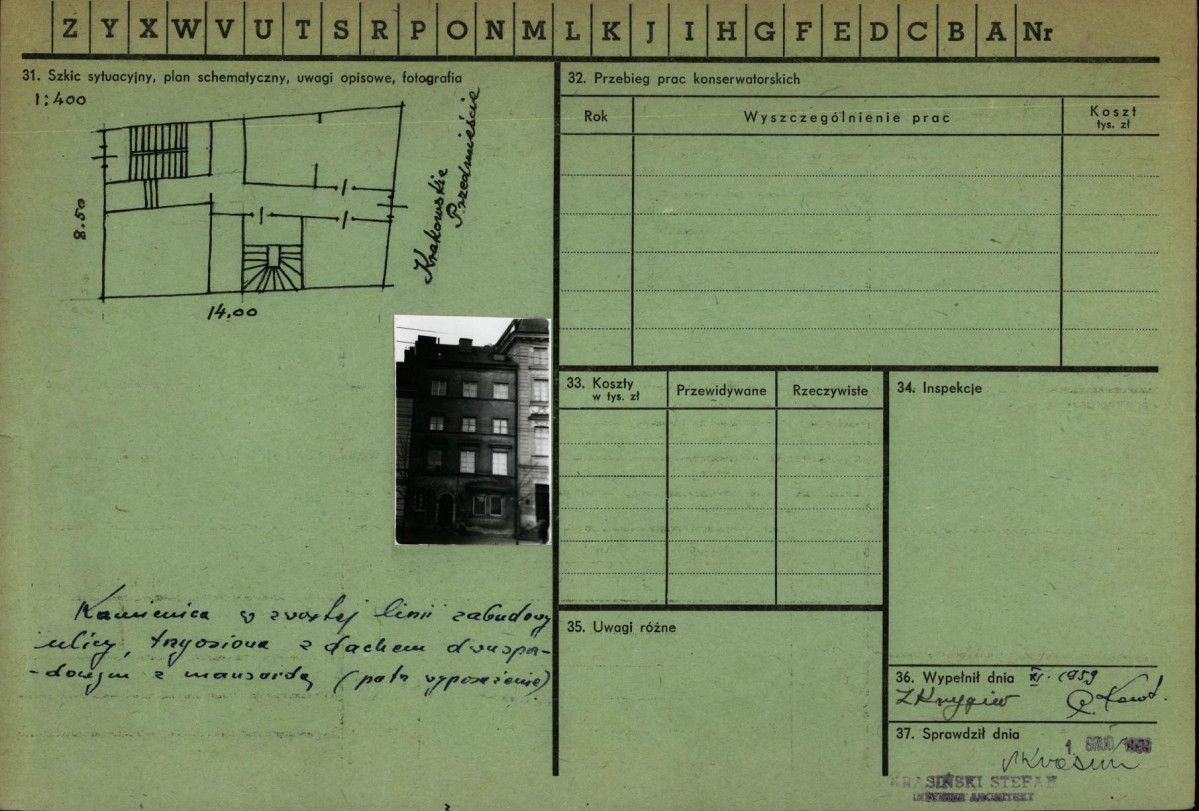 Z Y X W V U T S R P O N M L K J I H G F E D C B A Nr
31. Szkic sytuacyjny, plan schematyczny, uwagi opisowe, fotografia
1:400
8.50
14,00
Krakowskie
Przedmieście
Kamienica w zwartej linii zabudowy
ulicy, trzyosiowa z dachem dwuspa-
-dowym z mansardą (patr wyposażenie)
32. Przebieg prac konserwatorskich
Rok
Wyszczególnienie prac
Koszt
tys. zł
33. Koszty
w tys. zł
Przewidywane
Rzeczywiste
34. Inspekcje
35. Uwagi różne
36. Wypełnił dnia XI. 1959
37. Sprawdził dnia
1 GRUD 1959
KRASIŃSKI STEFAN
ARCHITEKT